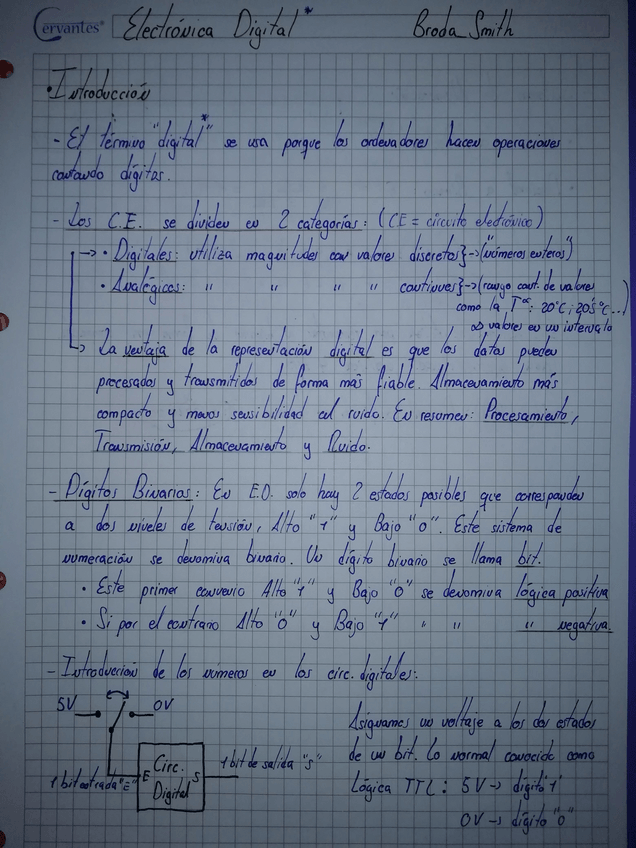 Cervantes® Electrónica Digital* Broda Smith
• Introducción
- El término "digital"* se usa porque los ordenadores hacen operaciones
contando dígitos.
- Los C.E. se dividen en 2 categorías: (CE = circuito electrónico)
→ • Digitales: utiliza magnitudes con valores discretos}→("números enteros")
• Analógicos: " " " " continuos}→(rango cont. de valores
como la Tª: 20°C; 20'5°C...)
∞ valores en un intervalo
↳ La ventaja de la representación digital es que los datos pueden
procesados y transmitidos de forma más fiable. Almacenamiento más
compacto y menos sensibilidad al ruido. En resumen: Procesamiento,
Transmisión, Almacenamiento y Ruido.
- Dígitos Binarios: En E.D. solo hay 2 estados posibles que corresponden
a dos niveles de tensión, Alto "1" y Bajo "0". Este sistema de
numeración se denomina binario. Un dígito binario se llama bit.
• Este primer convenio Alto "1" y Bajo "0" se denomina lógica positiva
• Si por el contrario Alto "0" y Bajo "1" " " " negativa.
- Introducción de los números en los circ. digitales:
5V 0V
Asignamos un voltaje a los dos estados
de un bit. Lo normal conocido como
Lógica TTL: 5V → dígito "1"
0V → dígito "0"
1 bit entrada "e" E Circ. Digital S 1 bit de salida "s"